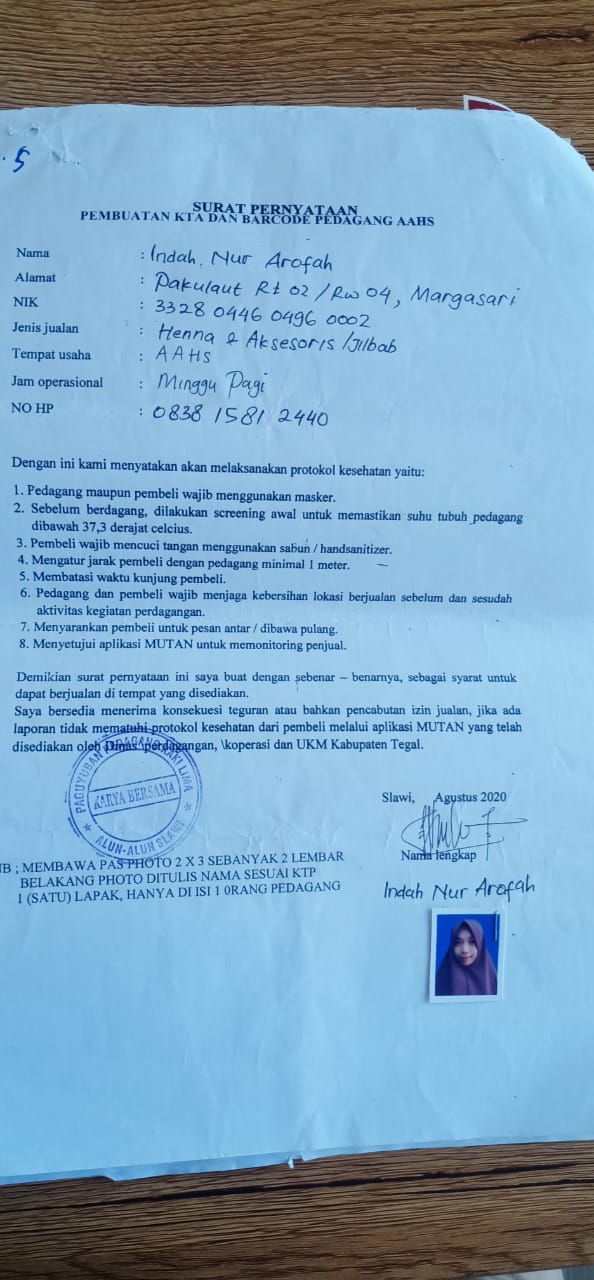 5
SURAT PERNYATAAN
PEMBUATAN KTA DAN BARCODE PEDAGANG AAHS
Nama : Indah Nur Arofah
Alamat : Pakulaut Rt 02 / Rw 04, Margasari
NIK : 3328 0446 0496 0002
Jenis jualan : Henna & Aksesoris / Jilbab
Tempat usaha : AAHS
Jam operasional : Minggu Pagi
NO HP : 0838 1581 2440
Dengan ini kami menyatakan akan melaksanakan protokol kesehatan yaitu:
1. Pedagang maupun pembeli wajib menggunakan masker.
2. Sebelum berdagang, dilakukan screening awal untuk memastikan suhu tubuh pedagang
dibawah 37,3 derajat celcius.
3. Pembeli wajib mencuci tangan menggunakan sabun / handsanitizer.
4. Mengatur jarak pembeli dengan pedagang minimal 1 meter.
5. Membatasi waktu kunjung pembeli.
6. Pedagang dan pembeli wajib menjaga kebersihan lokasi berjualan sebelum dan sesudah
aktivitas kegiatan perdagangan.
7. Menyarankan pembeli untuk pesan antar / dibawa pulang.
8. Menyetujui aplikasi MUTAN untuk memonitoring penjual.
Demikian surat pernyataan ini saya buat dengan sebenar – benarnya, sebagai syarat untuk
dapat berjualan di tempat yang disediakan.
Saya bersedia menerima konsekuesi teguran atau bahkan pencabutan izin jualan, jika ada
laporan tidak mematuhi protokol kesehatan dari pembeli melalui aplikasi MUTAN yang telah
disediakan oleh Dinas \perdagangan, \koperasi dan UKM Kabupaten Tegal.
PAGUYUBAN PEDAGANG KAKI LIMA
KARYA BERSAMA
ALUN-ALUN SLAWI
Slawi, Agustus 2020
Nama lengkap
Indah Nur Arofah
NB ; MEMBAWA PAS PHOTO 2 X 3 SEBANYAK 2 LEMBAR
BELAKANG PHOTO DITULIS NAMA SESUAI KTP
1 (SATU) LAPAK, HANYA DI ISI 1 0RANG PEDAGANG